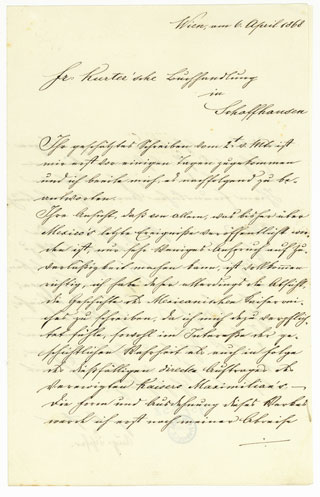 Wien, am 6. April 1868
Fr. Hurter'sche Buchhandlung
in
Schaffhausen
Ihr geschätztes Schreiben vom 24 v. Mts. ist
mir erst vor einigen Tagen zugekommen
und ich beeile mich, es nachfolgend zu be-
antworten.
Ihre Ansicht, daß von allem, was bisher über
Mexico's letzte Ereignisse veröffentlicht wor-
den ist, nur sehr Weniges Anspruch auf Zu-
verlässigkeit machen kann, ist vollkommen
richtig, ich habe daher allerdings die Absicht,
die Geschichte des Mexicanischen Kaiserrei-
ches zu schreiben, da ich mich dazu verpflich-
tet fühle, sowohl im Interesse der ge-
schichtlichen Wahrheit als auch in Folge
des dießfälligen directen Auftrages des
verewigten Kaisers Maximilian's. —
Die Form und Ausdehnung dieses Werkes
werde ich erst nach meiner Abreise